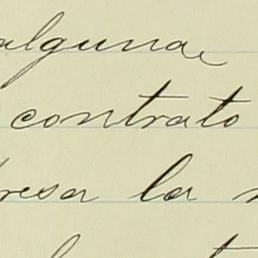 alguna
contrato
resa la